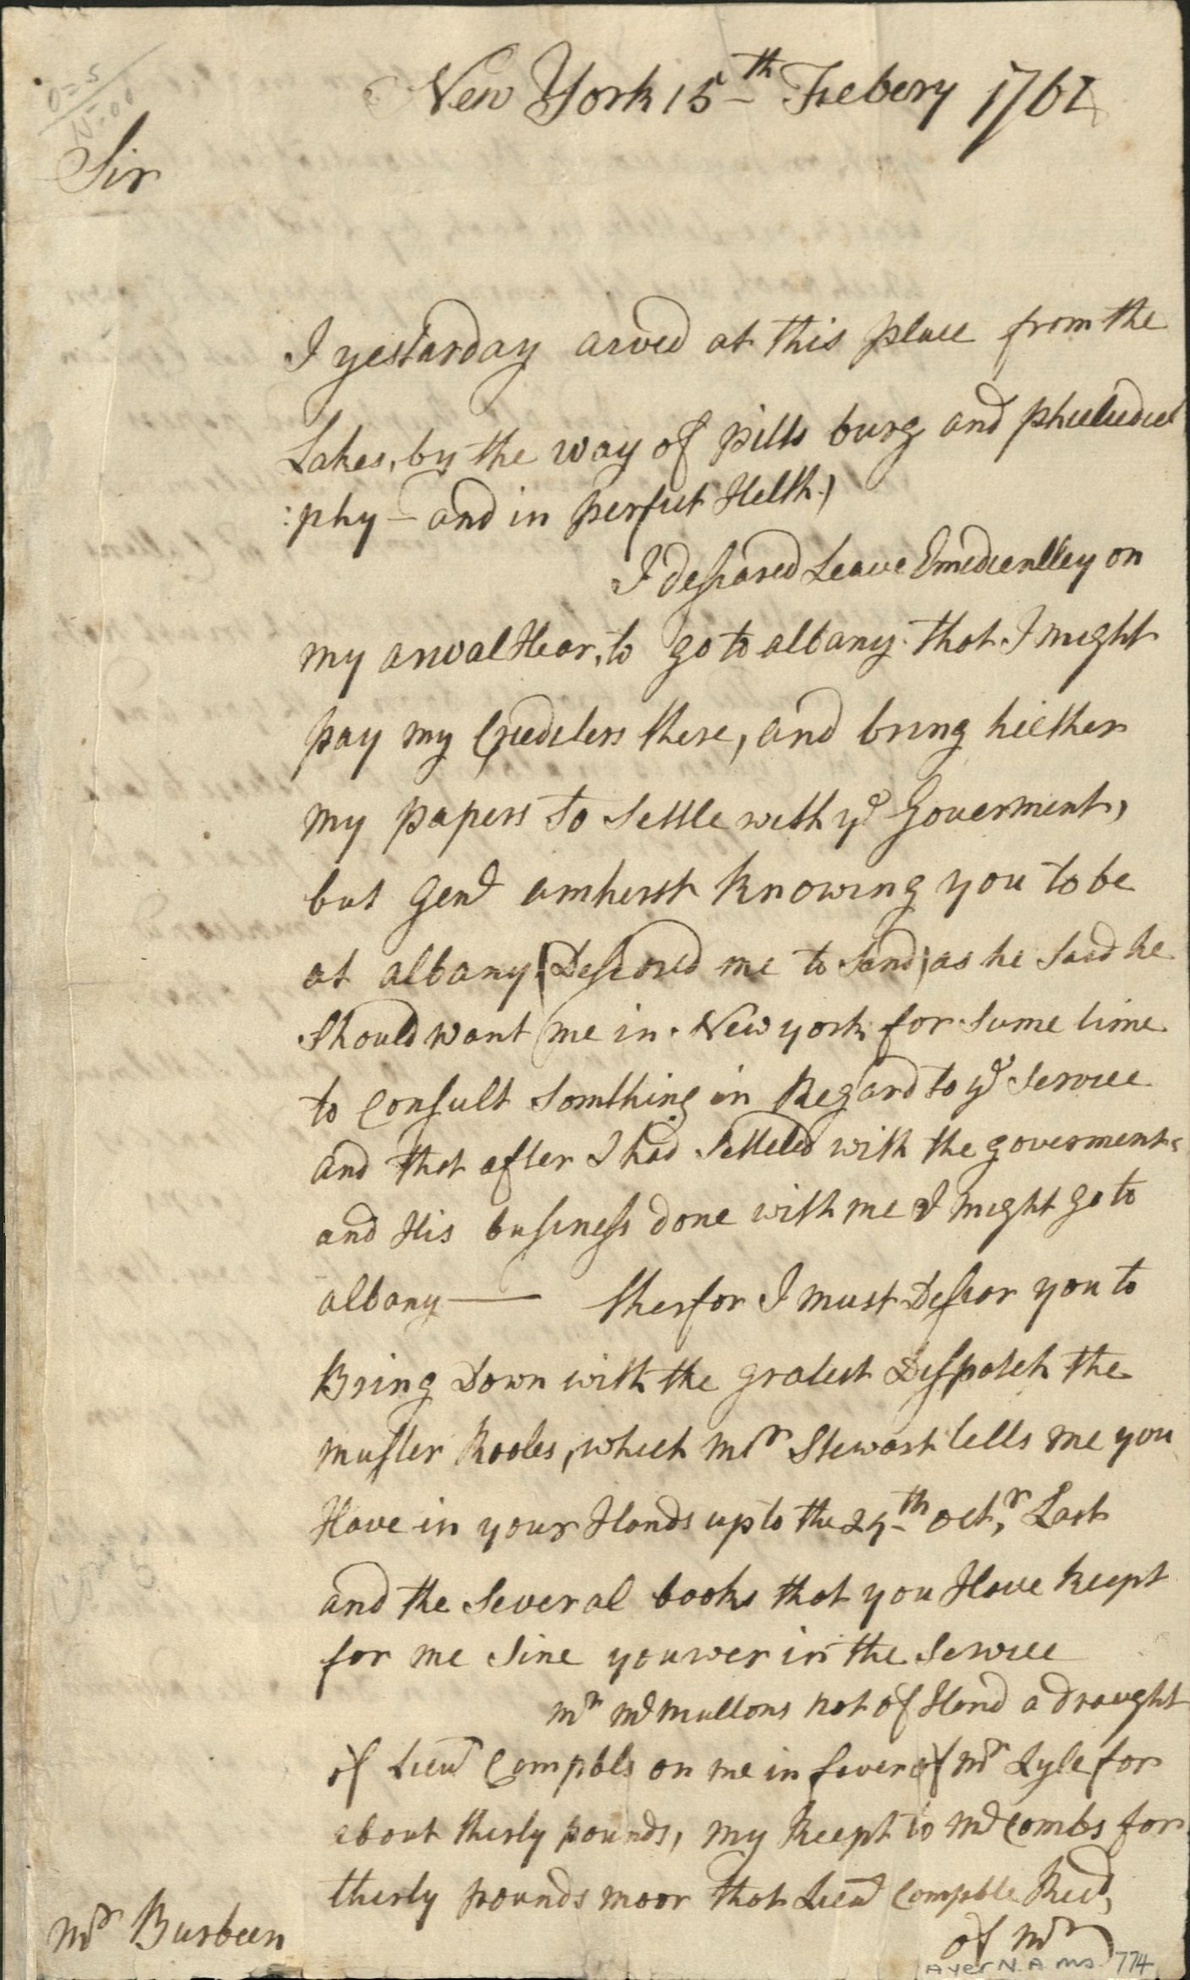 0=5
N=00
New York 15th Febery 1761
Sir
I yestarday arved at this place from the
Lakes, by the way of pitts burg and Pheeludiel
:phy — and in perfict Helth,
I desiared Leave Emedientlley on
my arval Hear, to go to albany that I might
pay my Crediters there, and bring hiether
my papers to settle with ye Goverment,
but Genl amherst knowing you to be
at albany Desiored me to Sand, as he Said he
Should want me in New york for Sume time
to Consult Somthing in Regard to ye Service
and that after I had Setteled with the goverment
and His business done with me I might go to
albany — therfor I must Desior you to
Bring Down with the gratest Dispatch the
muster Rooles, which Mr Stewart tells me you
Have in your Hands up to the 24th Octr, Last
and the Several books that you Have keept
for me Sine you wer in the Service
Mr McMullons not of Hand a draught
of Lieut Campbls on me in faver of Mr Lyle for
about thirty pounds, my Reept to McCombs for
thirty pounds moor that Lieut Campble Recd,
of Mr
Mr Burbeen
Ayer N.A. ms 774